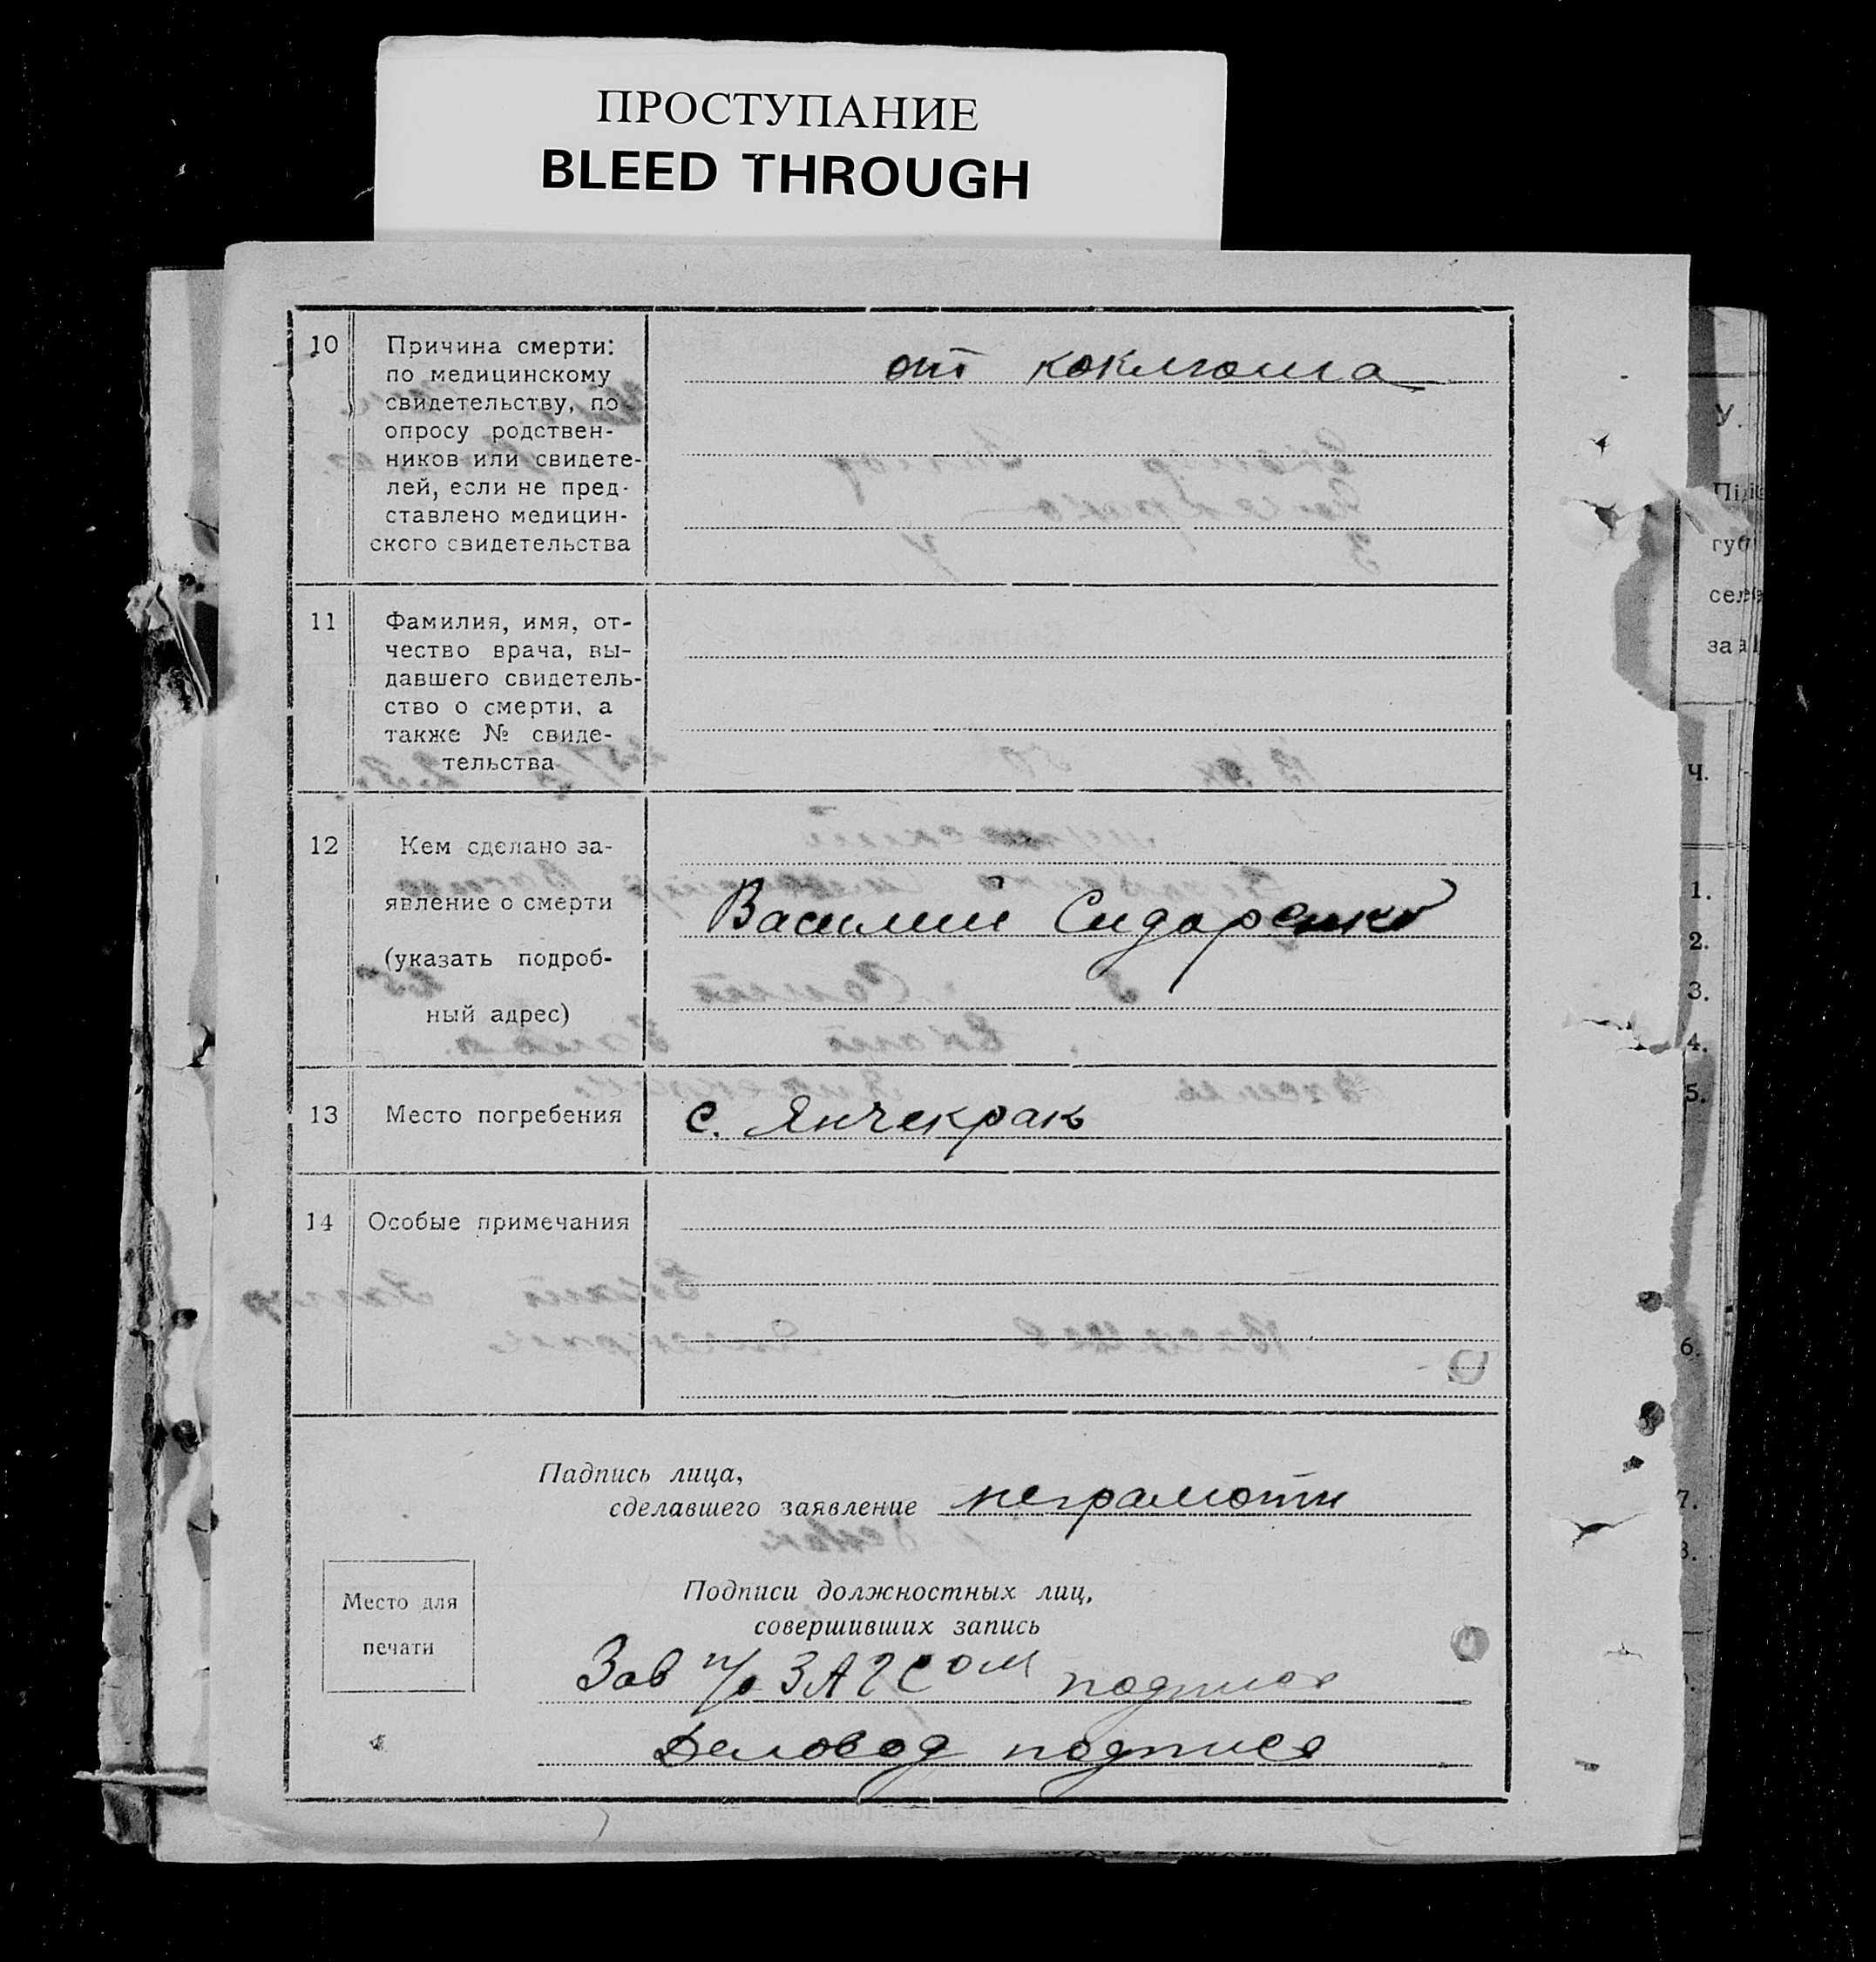 ПРОСТУПАНИЕ
BLEED THROUGH
10
Причина смерти:
по медицинскому
свидетельству, по
опросу родствен-
ников или свидете-
лей, если не пред-
ставлено медицин-
ского свидетельства
от коклюша
11
Фамилия, имя, от-
чество врача, вы-
давшего свидетель-
ство о смерти, а
также № свиде-
тельства
12
Кем сделано за-
явление о смерти
(указать подроб-
ный адрес)
Василий Сидоренко
13
Место погребения
с. Янчекрак
14
Особые примечания
Падпись лица,
сделавшего заявление неграмотн
Место для
печати
Подписи должностных лиц,
совершивших запись
Зав п/о ЗАГСом подписа
Деловод подписа
У.
Ч.
1.
2.
3.
4.
5.
6.
7.